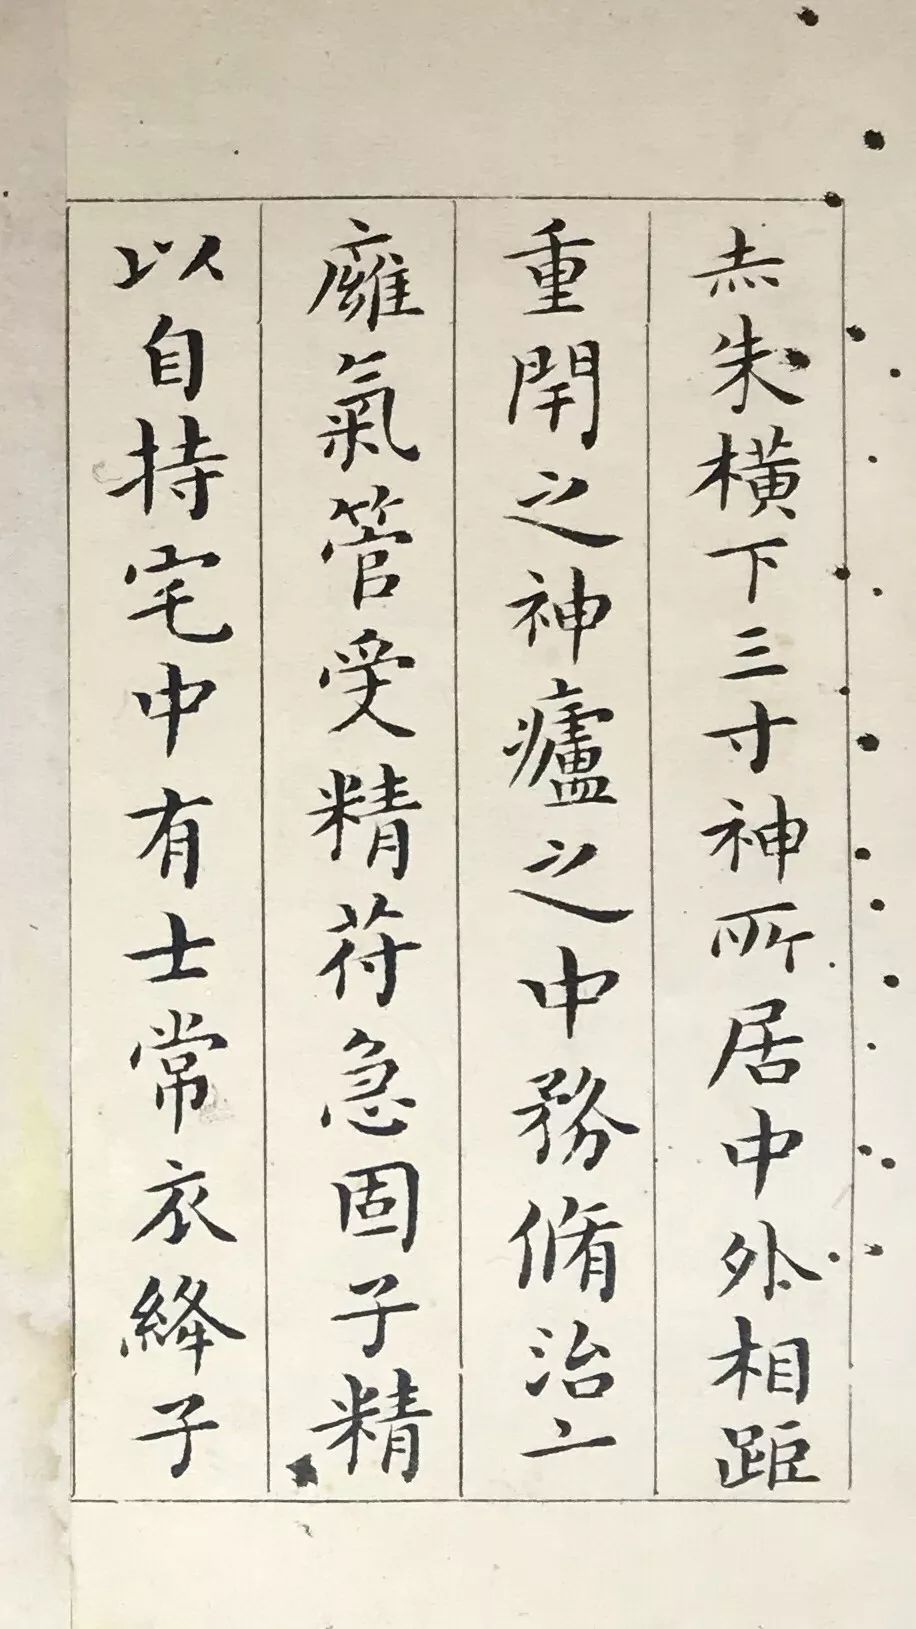 赤朱横下三寸神所居中外相距
重閈之神癰之中務脩治二
廱氣管受精苻急固子精
以自持宅中有士常衣絳子